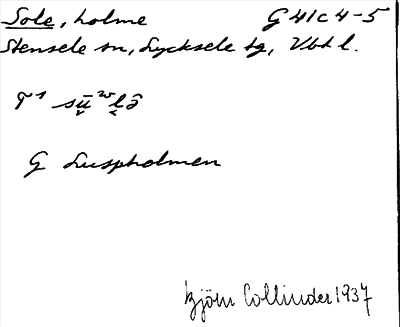 Sole, holme G 41c 4-5
Stensele sn, Lycksele tg, Vbt l.
sū̬ʷl̬ɔ̄
G Luspholmen
Björn Collinder 1937